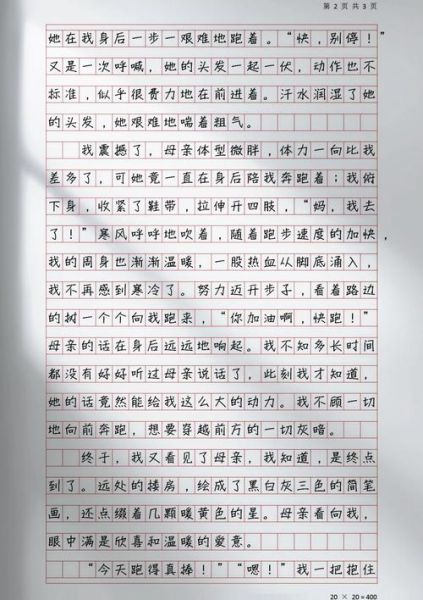 第 2 页 共 3 页
她在我身后一步一艰难地跑着。“快，别停！”
又是一次呼喊，她的头发一起一伏，动作也不
标准，似乎很费力地在前进着。汗水润湿了她
的头发，她艰难地喘着粗气。
我震撼了，母亲体型微胖，体力一向比我
差多了，可她竟一直在身后陪我奔跑着；我俯
下身，收紧了鞋带，拉伸开四肢，“妈，我去
了！”寒风呼呼地吹着，随着跑步速度的加快，
我的周身也渐渐温暖，一股热血从脚底涌入，
我不再感到寒冷了。努力迈开步子，看着路边
的树一个个向我跑来，“你加油啊，快跑！”
母亲的话在身后远远地响起。我不知多长时间
都没有好好听过母亲说话了，此刻我才知道，
她的话竟然能给我这么大的动力。我不顾一切
地向前奔跑，想要穿越前方的一切灰暗。
终于，我又看见了母亲，我知道，是终点
到了。远处的楼房，绘成了黑白灰三色的简笔
画，还点缀着几颗暖黄色的星。母亲看向我，
眼中满是欣喜和温暖的爱意。
“今天跑得真棒！”“嗯！”我一把抱住
20 × 20 = 400